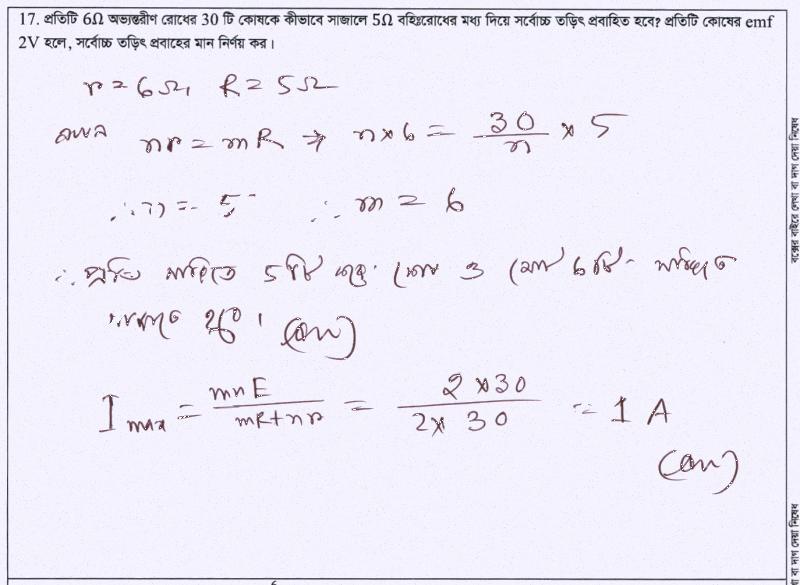 17. প্রতিটি 6Ω অভ্যন্তরীণ রোধের 30 টি কোষকে কীভাবে সাজালে 5Ω বহিঃরোধের মধ্য দিয়ে সর্বোচ্চ তড়িৎ প্রবাহিত হবে? প্রতিটি কোষের emf
2V হলে, সর্বোচ্চ তড়িৎ প্রবাহের মান নির্ণয় কর।
r = 6Ω, R = 5Ω
nr = mR ⇒ n×6 = 30/n × 5
∴ n = 5 ∴ m = 6
∴ প্রতি সারিতে 5 টি করে কোষ ও মোট 6 টি সারিতে
হবে। (Ans)
I max = mnE/mR+nr = 2×30/2×30 = 1 A
(Ans)
বক্সের বাইরে লেখা বা দাগ দেয়া নিষেধ
বা দাগ দেয়া নিষেধ